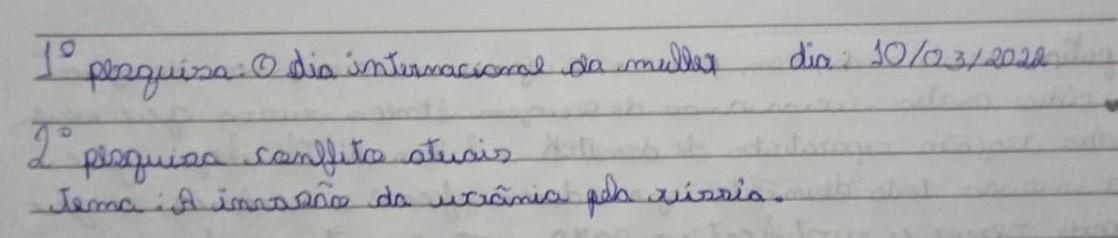 1º pesquisa: O dia internacional da mulher dia: 10/03/2022
2º pesquisa conflito atuais
Tema: A invasão da ucrânia pela rússia.